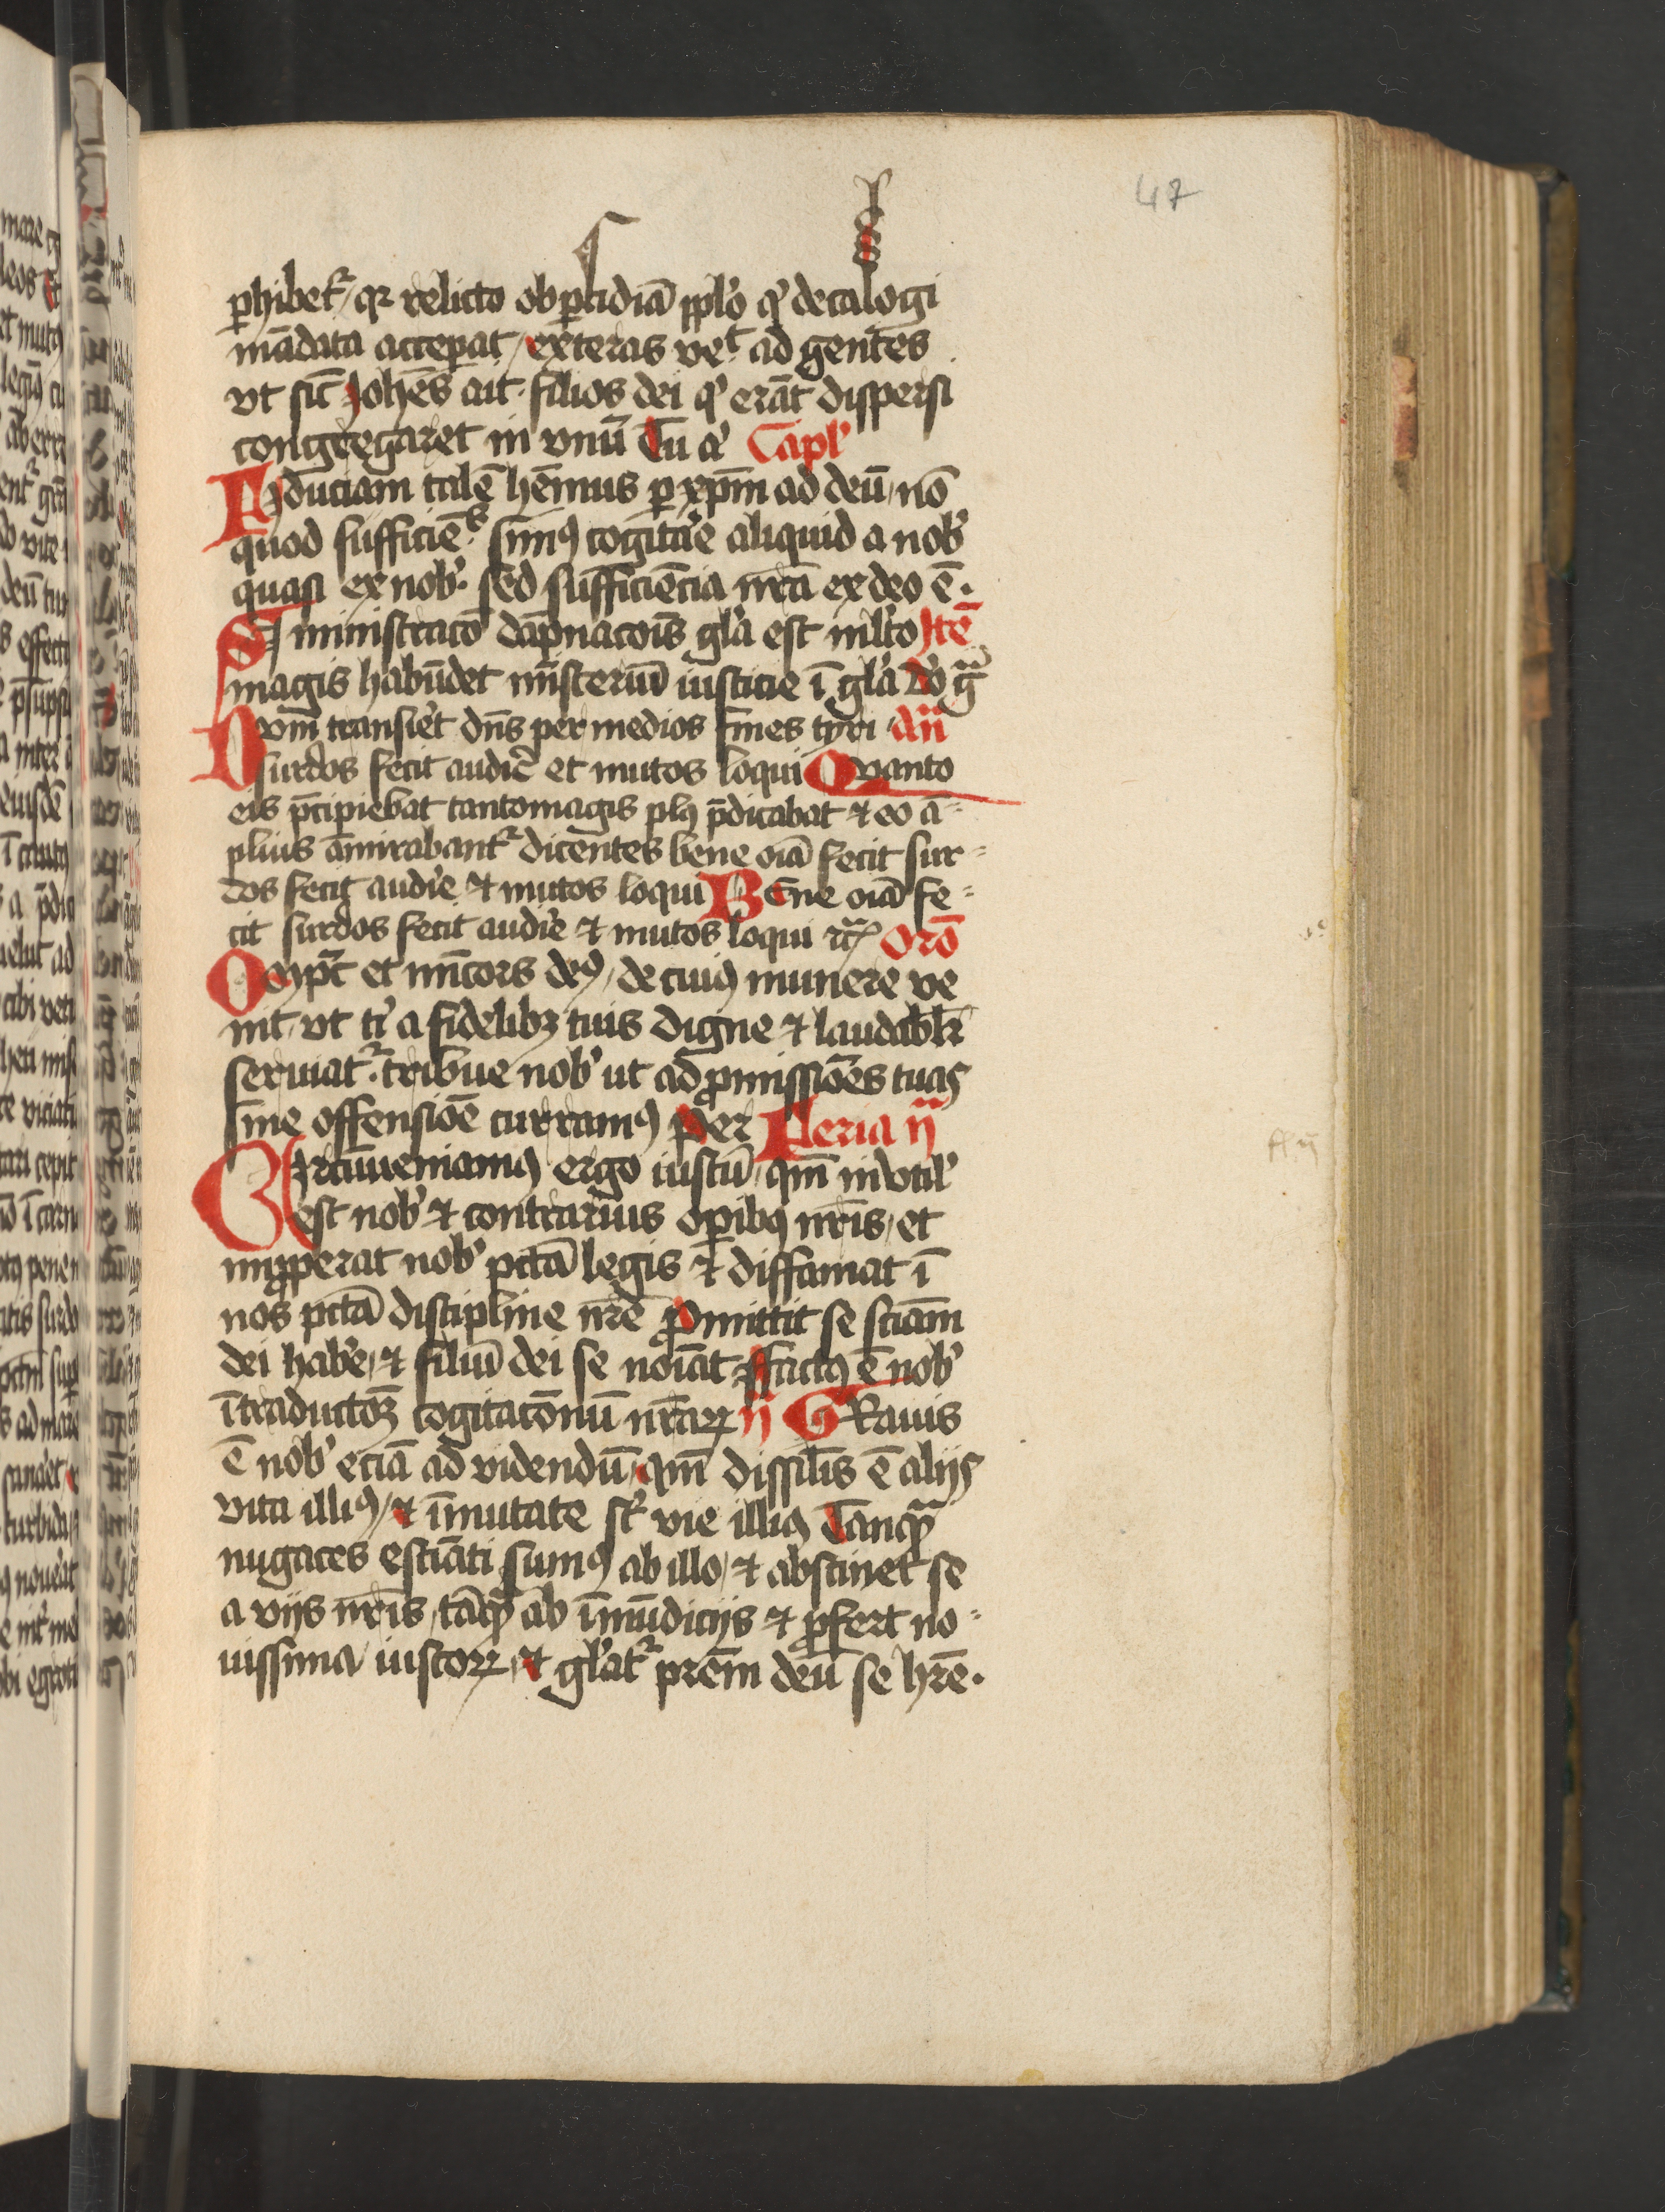 47
ꝑhibet᷑ / qꝛ relicto ob ꝑfidiā pplo qͥ decalogi
mādata acceꝑat / exteras veĺ ad gentes
vt sic̄ Johēs ait · filios dei qͥ erāt dispersi
congregaret in vnū Tu aͥ Capl'
Fiduciam talē hēmus ꝑ xp̄m ad deū / nō
quod sufficiētes simꝯ cogitare aliquid a nob'
quasi ex nob' · sed sufficiēcia nr̄a ex deo ē ·
Si ministraco dāpnacois gl'a est ml'to Itē
magis habūdet mīsteriū iusticie ī gl'a Do gͣ
Dvm transiet dn̄s per medios fines tyri · Añ
surdos fecit audire et mutos loqui Qvanto
eis p̄cipiebat tantomagis plꝯ p̄dicabat ⁊ eo ā⸗
plius āmirabant᷑ dicentes bene oīa fecit sur⸗
dos fecit audire ⁊ mutos loqui BEne oīa fe⸗
cit surdos fecit audire ⁊ mutos loqui Oro
Omp̄s et mīcors deꝯ / de cuiꝯ munere ve
nit / vt tͥ a fidelibꝫ tuis digne ⁊ laudabl'r
seruiat᷑ · tribue nob' ut ad ꝓmissiōes tuas
sine offensiōe curramꝯ Per Feria ij
CIrcūueniamꝯ ergo iustū / qm̄ invtil'
est nob' ⁊ contrarius oꝑibꝯ nr̄is / et
imꝓperat nob' pctā legis ⁊ diffamat ī
nos pctā discipline nr̄e Ꝓmittit se sciam
dei habe / ⁊ filiū dei se noīat Factꝯ ē nob'
ī traductoꝫ cogitacōnū nr̄aꝝ ij GRauis
ē nob' eciā ad videndū / qm̄ dissil'is ē aliis
vita illiꝯ / ⁊ īmutate st̄ vie illiꝯ Tanqͣ
nugaces estīati sumꝯ ab illo / ⁊ abstinet se
a viis nr̄is / tāqͣ ab īmūdiciis ⁊ p̄fert no⸗
uissima iustoꝝ / ⁊ gl'at᷑ prēm deū se hr̄e ·